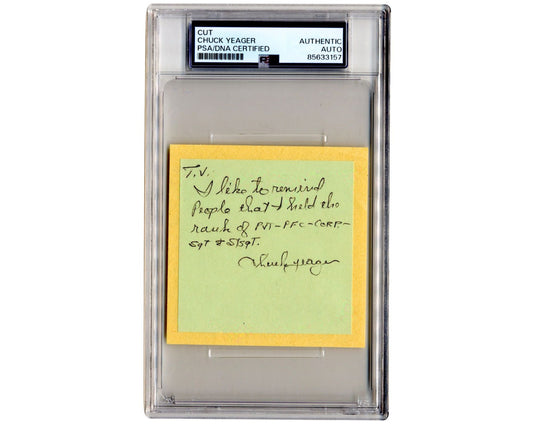 CUT
CHUCK YEAGER
PSA/DNA CERTIFIED
AUTHENTIC
AUTO
85633157
T.V.
I like to remind
People that I held the
rank of PVT-PFC-CORP-
Sgt & S/Sgt.
Chuck Yeager